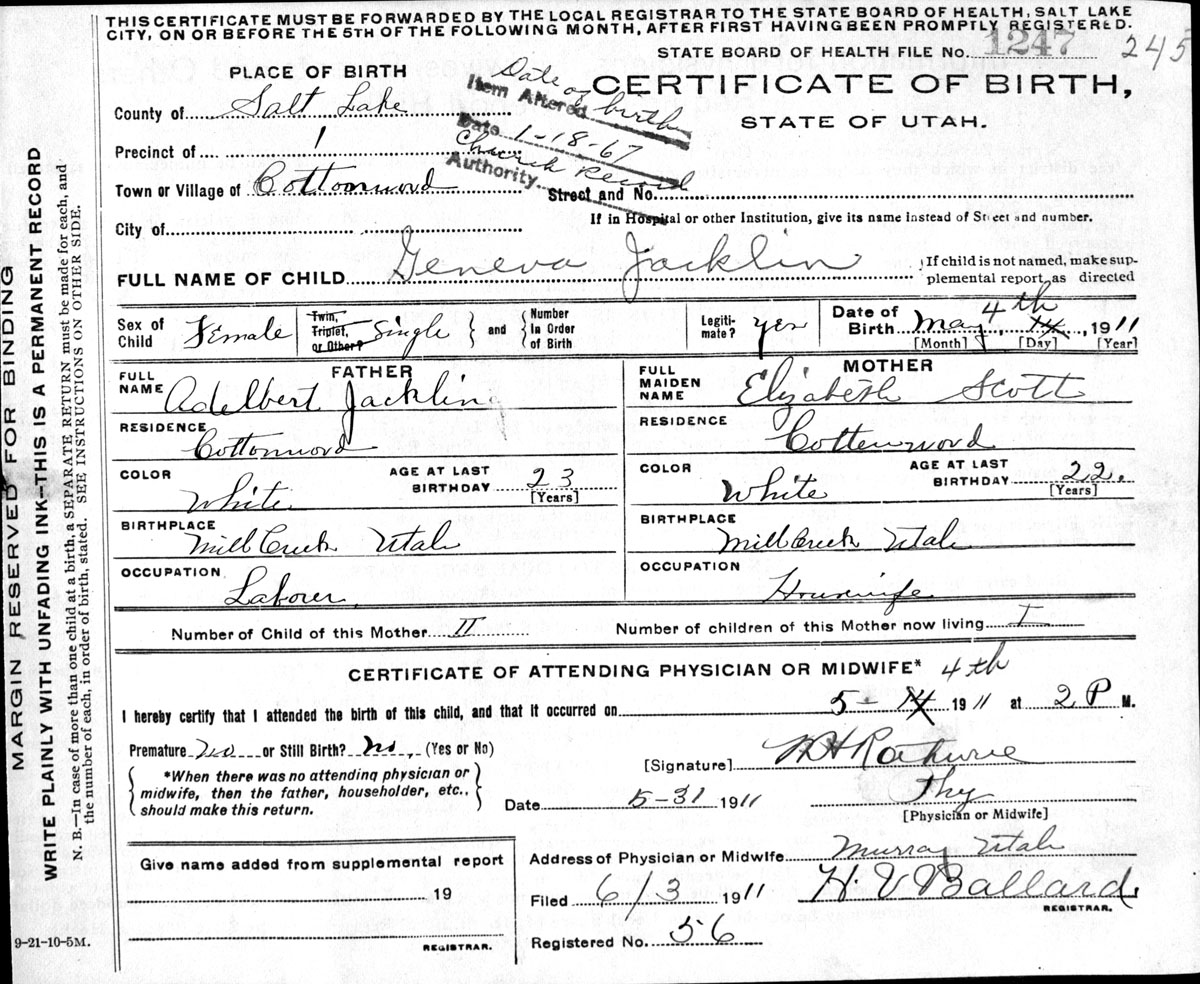 THIS CERTIFICATE MUST BE FORWARDED BY THE LOCAL REGISTRAR TO THE STATE BOARD OF HEALTH, SALT LAKE
CITY, ON OR BEFORE THE 5TH OF THE FOLLOWING MONTH, AFTER FIRST HAVING BEEN PROMPTLY REGISTERED.
STATE BOARD OF HEALTH FILE No. 1247 245
PLACE OF BIRTH
CERTIFICATE OF BIRTH,
STATE OF UTAH.
Item Altered Date of birth
Date 1-18-67
Authority Church Record
County of Salt Lake
Precinct of 1
Town or Village of Cottonwood Street and No.
If in Hospital or other Institution, give its name instead of Street and number.
City of
FULL NAME OF CHILD Geneva Jacklin
If child is not named, make sup-
plemental report, as directed
Sex of Child Female
Twin, Triplet, or Other? Single and Number In Order of Birth
Legiti-mate? yes
Date of Birth May 4th, 14, 1911
[Month] [Day] [Year]
FATHER
FULL NAME Adelbert Jackling
RESIDENCE Cottonwood
COLOR White AGE AT LAST BIRTHDAY 23 [Years]
BIRTHPLACE Mill Creek Utah
OCCUPATION Laborer
MOTHER
FULL MAIDEN NAME Elizabeth Scott
RESIDENCE Cottenwood
COLOR White AGE AT LAST BIRTHDAY 22. [Years]
BIRTHPLACE Mill Creek Utah
OCCUPATION Housewife
Number of Child of this Mother II Number of children of this Mother now living I
CERTIFICATE OF ATTENDING PHYSICIAN OR MIDWIFE*
4th
I hereby certify that I attended the birth of this child, and that it occurred on 5-14 1911 at 2 P M.
Premature no or Still Birth? no, (Yes or No)
*When there was no attending physician or
midwife, then the father, householder, etc.,
should make this return.
[Signature]
Date 5-31 1911 Phy
[Physician or Midwife]
Give name added from supplemental report
19
REGISTRAR.
Address of Physician or Midwife Murray Utah
Filed 6/3 1911 H V Ballard
REGISTRAR.
Registered No. 56
9-21-10-5M.
MARGIN RESERVED FOR BINDING
WRITE PLAINLY WITH UNFADING INK—THIS IS A PERMANENT RECORD
N. B.—In case of more than one child at a birth, a SEPARATE RETURN must be made for each, and
the number of each, in order of birth, stated. SEE INSTRUCTIONS ON OTHER SIDE.